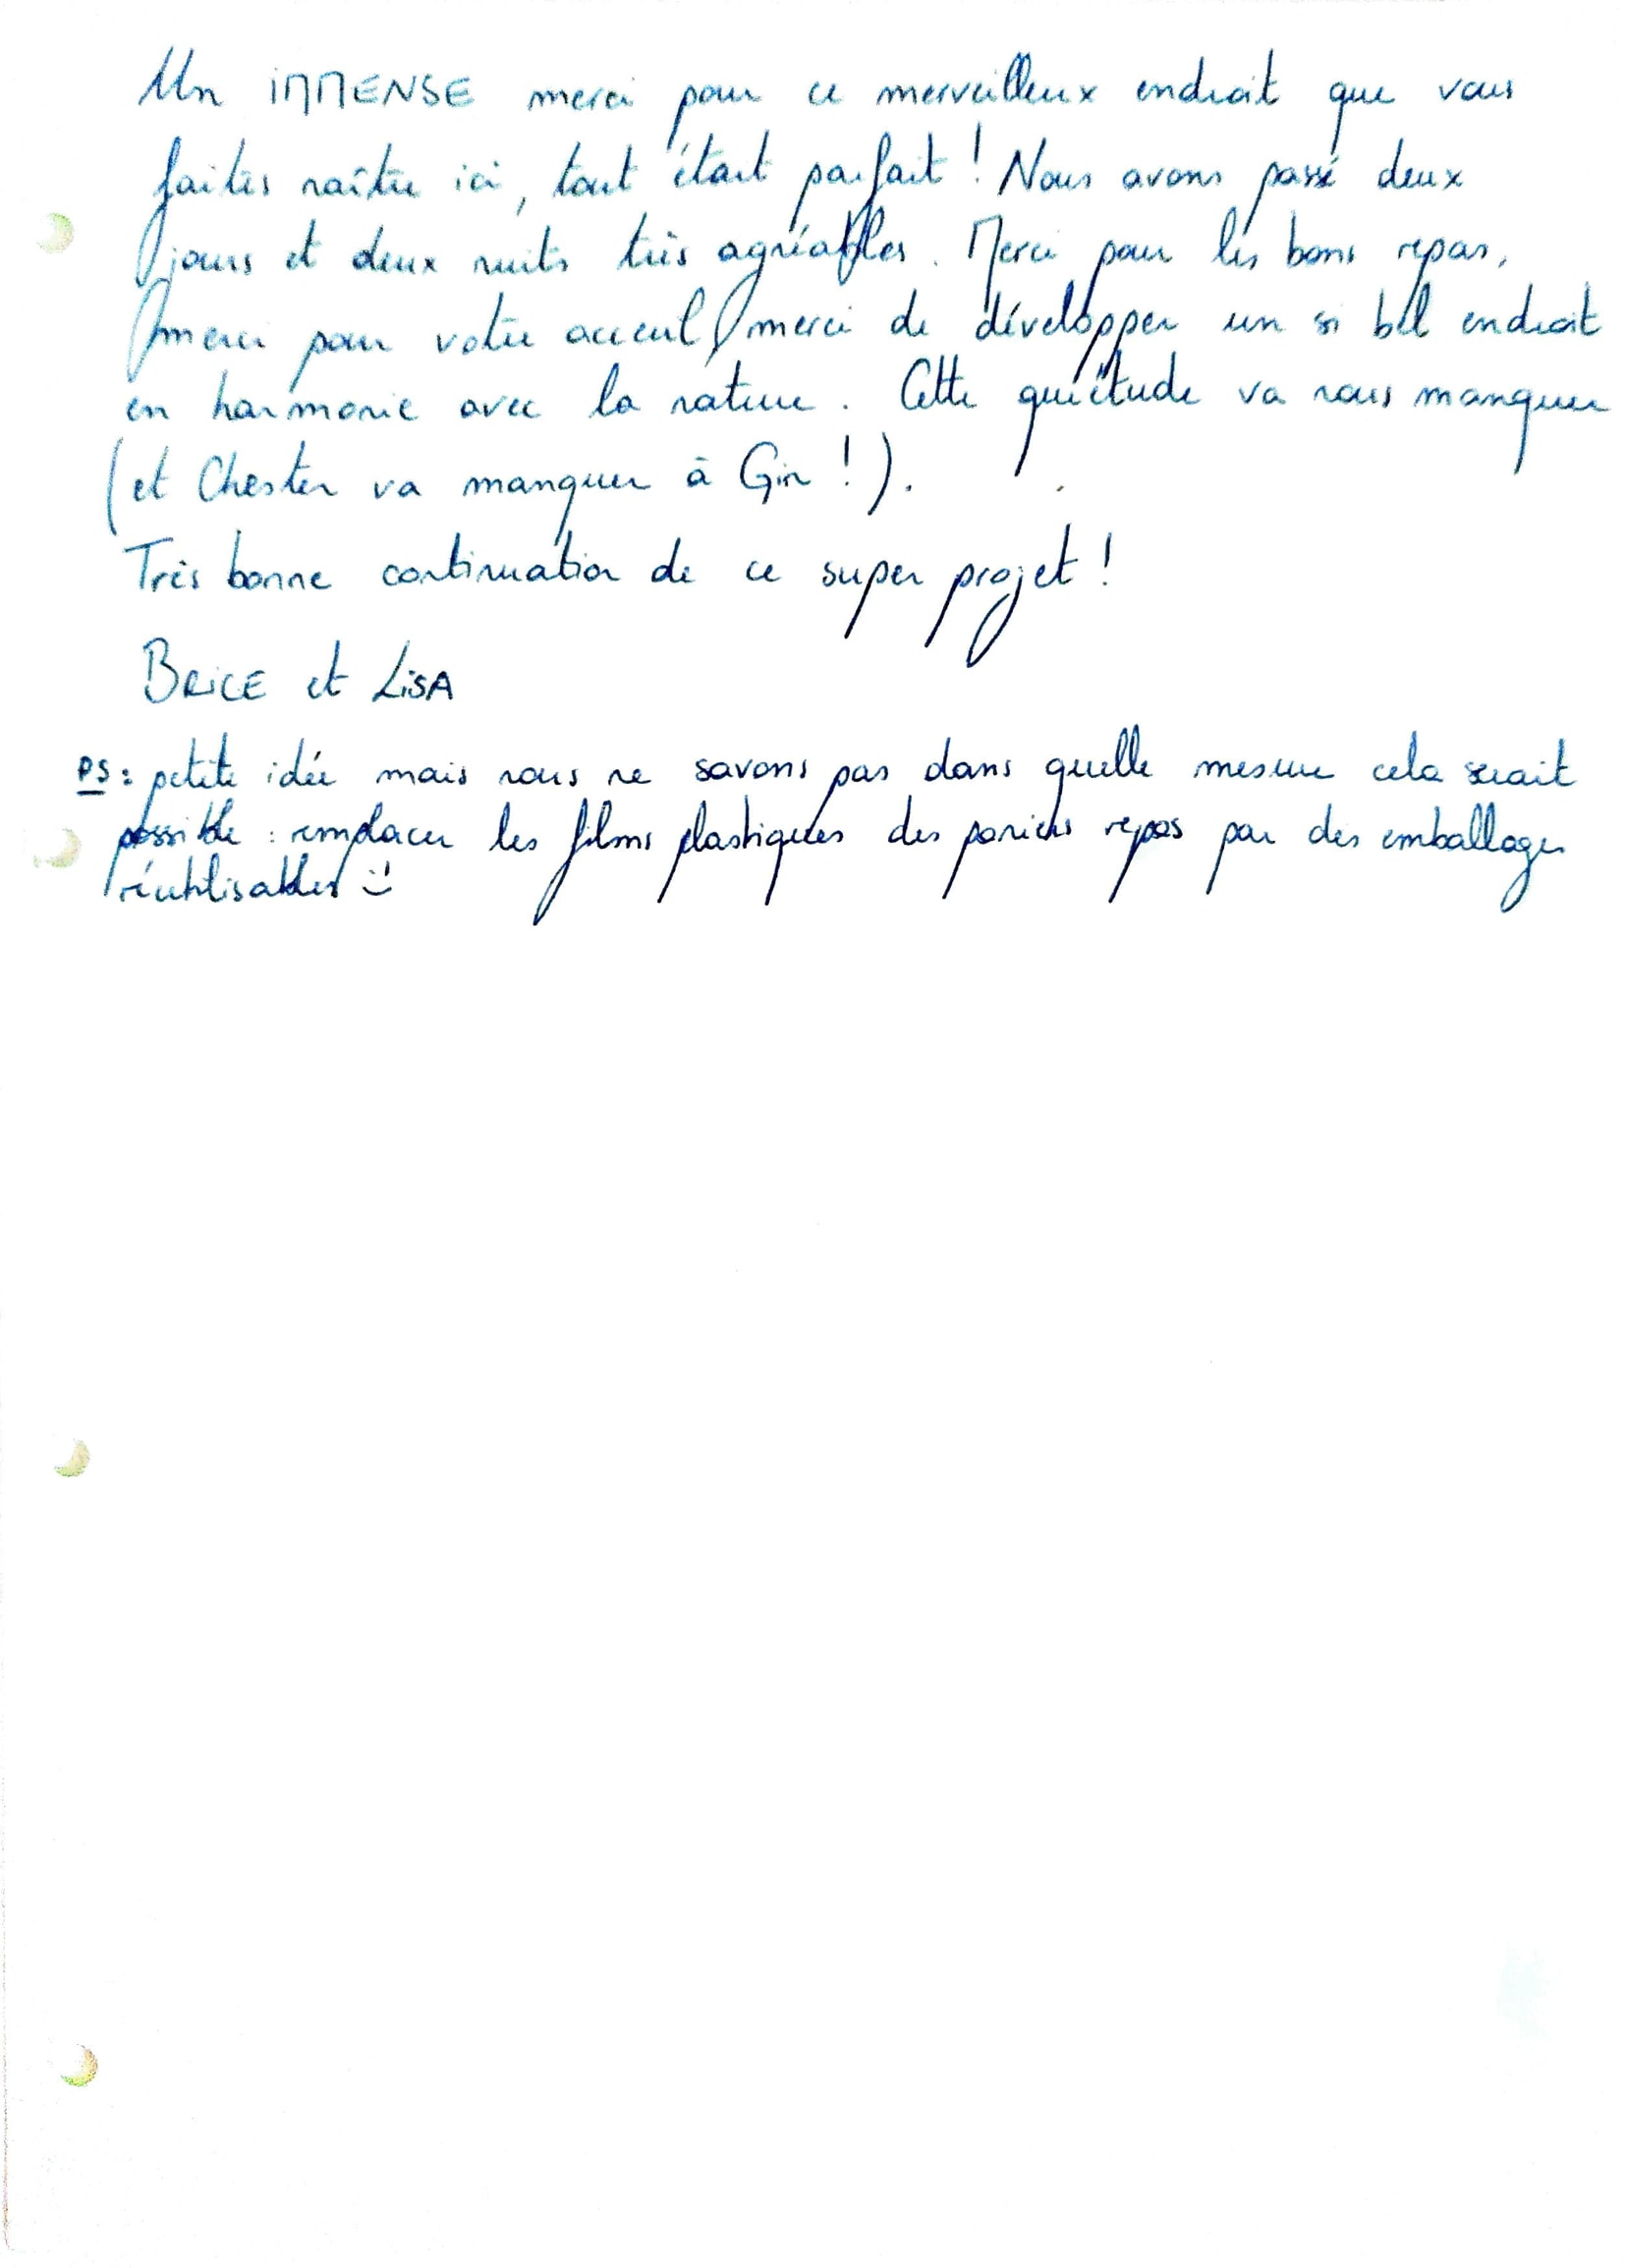 Un IMMENSE merci pour ce merveilleux endroit que vous
faites naître ici, tout était parfait ! Nous avons passé deux
jours et deux nuits très agréables. Merci pour les bons repas,
merci pour votre acceuil, merci de développer un si bel endroit
en harmonie avec la nature. Cette quiétude va nous manquer
(et Chester va manquer à Gin !).
Très bonne continuation de ce super projet !
BRICE et LISA
PS : petite idée mais nous ne savons pas dans quelle mesure cela serait
possible : remplacer les films plastiques des paniers repas par des emballages
réutilisables :)